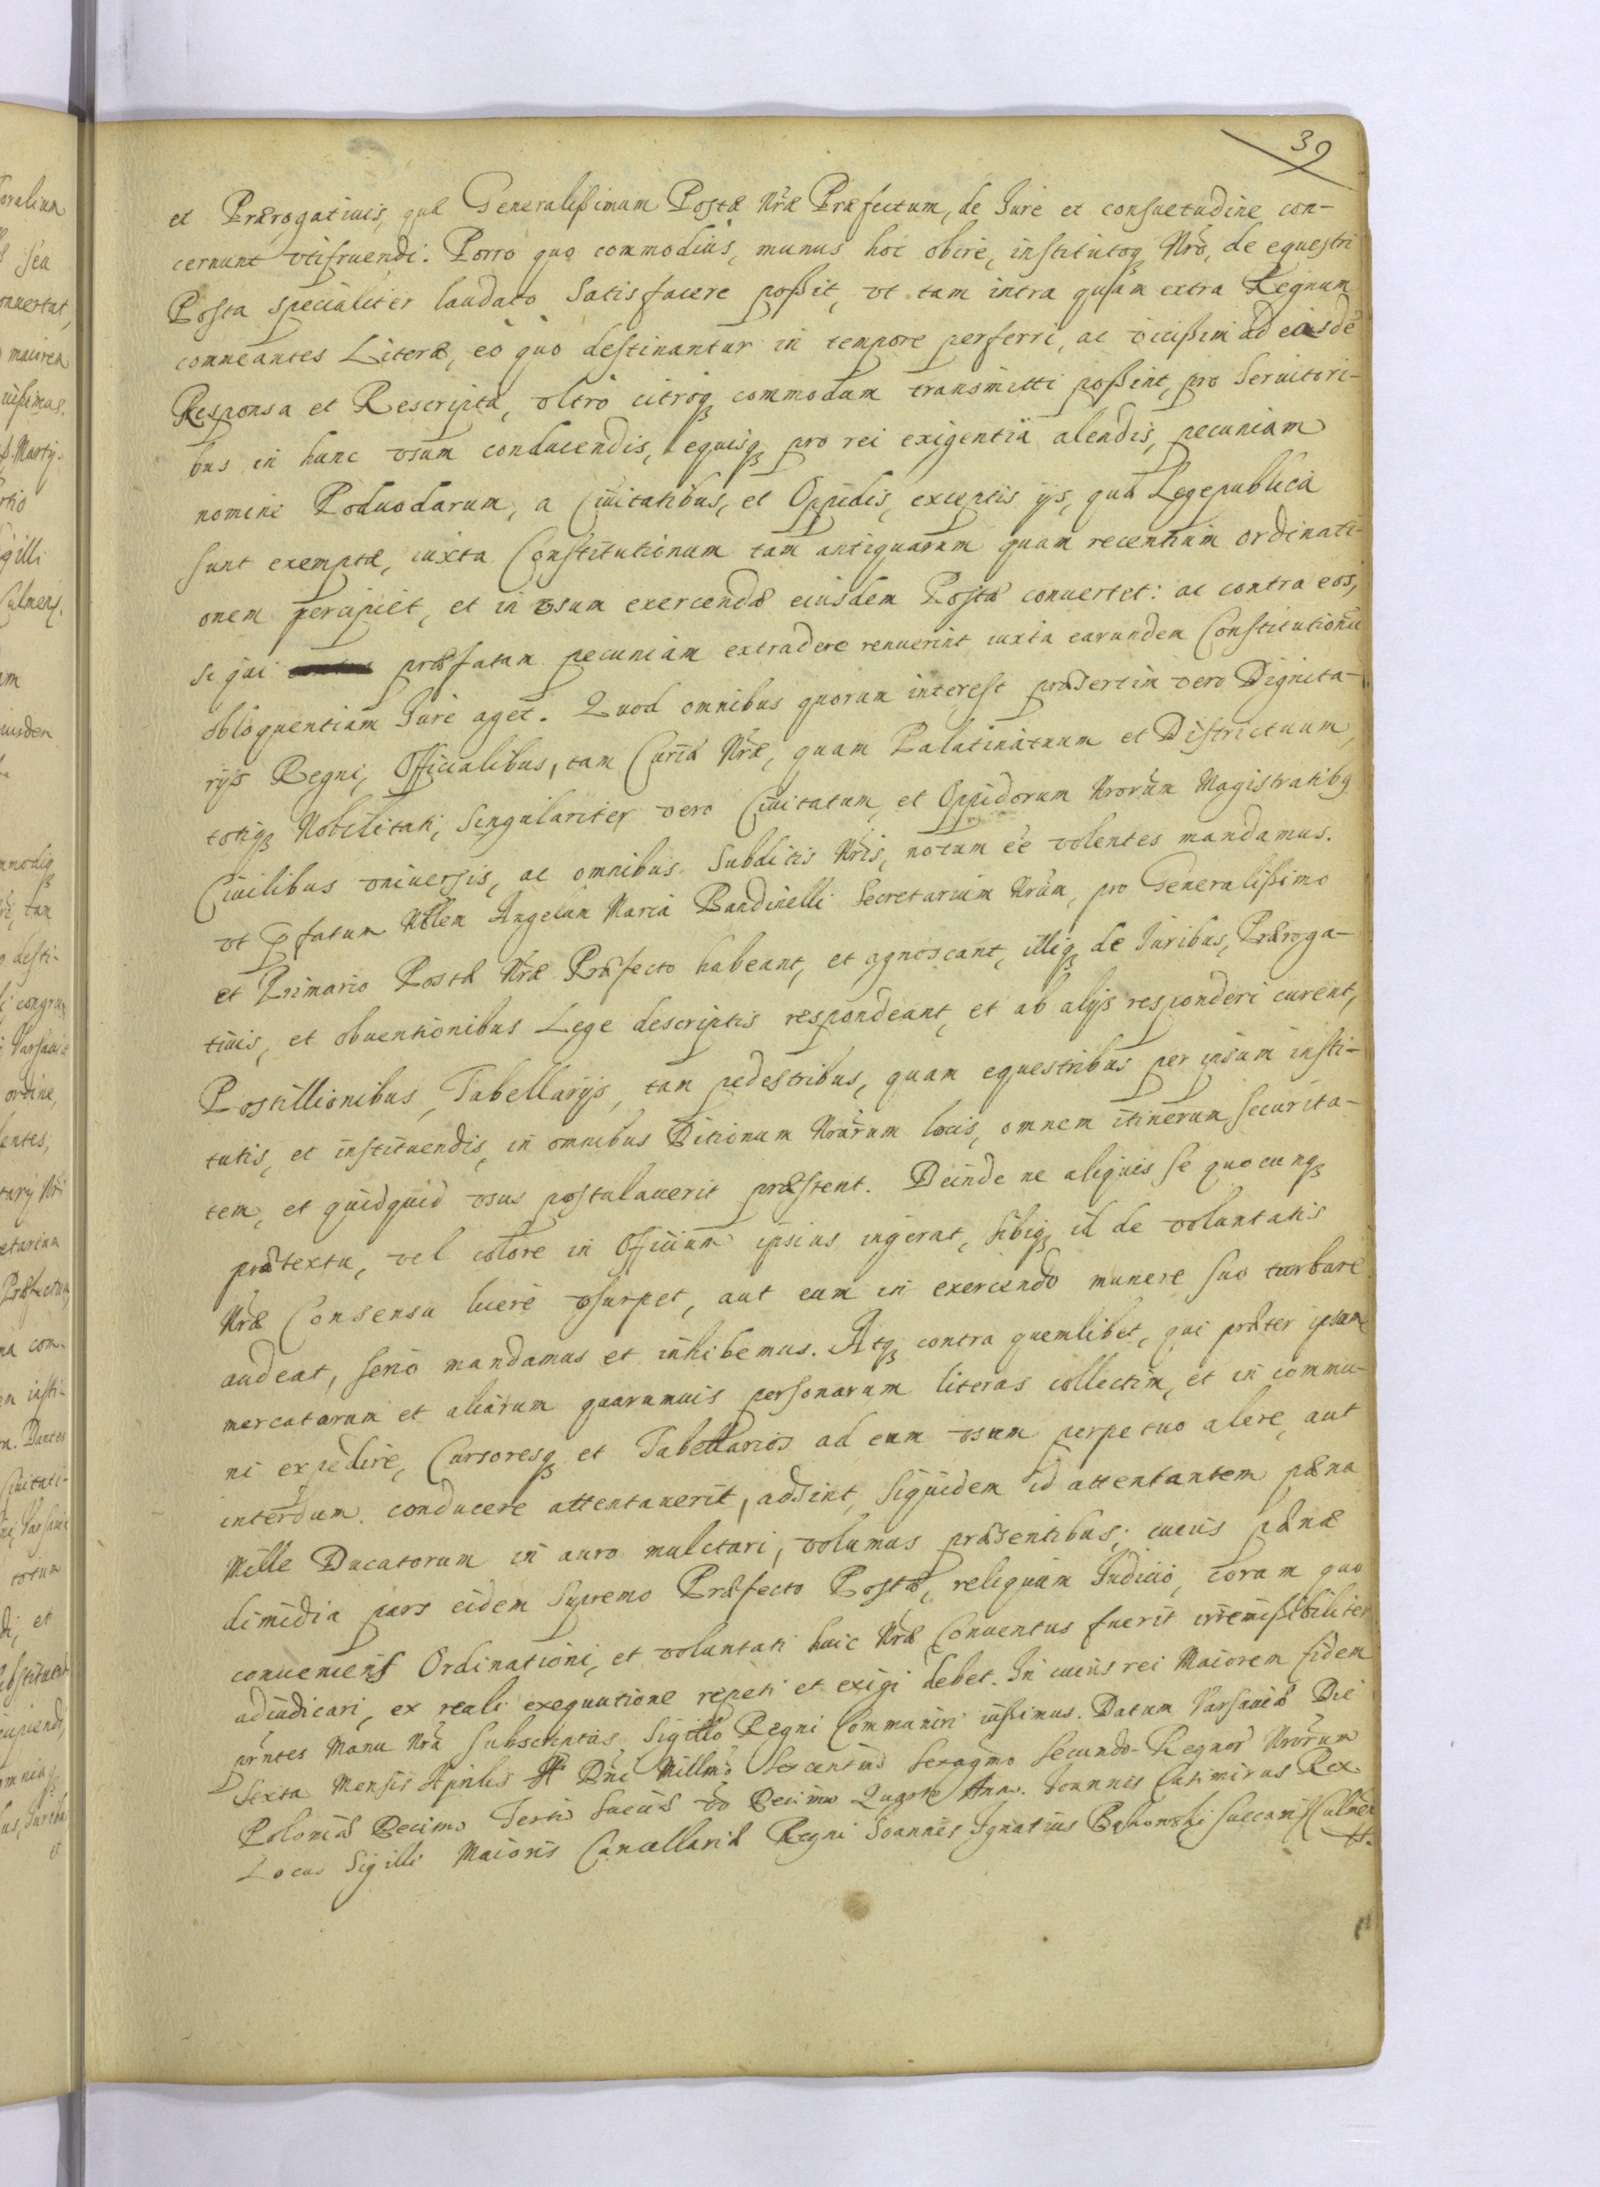 39
et Prærogativis, quæ Generalißimum Postæ Nræ Præfectum, de Jure et consuetudine con-
cernunt vtifruendi. Porro quo commodius, munus hoc obire, institutoq Nro, de equestri
Posta specialiter laudato Satisfacere poßit, vt tam intra quam extra Regnum
commeantes Literæ, eò quo destinantur in tempore perferri, ac vicißim ad easdē
Responsa et Rescripta, vltrò citroq commodum transmitti poßint, pro Servitori-
bus in hunc vsum conducendis, equisq pro rei exigentia alendis, pecuniam
nomine Podwodarum, a Civitatibus, et Oppidis, exceptis ijs, quæ Lege publica
sunt exemptæ, iuxta Constitutionum tam antiquarum quam recentium ordinati-
onem percipiet, et in vsum exercendæ eiusdem Postæ convertet: ac contra eos,
si qui præfatam pecuniam extradere renuerint iuxta earundem Constitutionū
obloquentiam Jure aget. Quod omnibus quorum interest præsertim vero Dignita-
rijs Regni, Officialibus, tam Curiæ Nræ, quam Palatinatuum et Districtuum,
totiq Nobilitati, Singulariter vero Civitatum, et Oppidorum Nrorum Magistratibq
Civilibus vniversis, ac omnibus Subditis Nris, notum ee volentes mandamus.
vt pfatum Nblem Angelum Maria Bandinelli Secretarium Nrum, pro Generalißimo
et Primario Postæ Nræ Præfecto habeant, et agnoscant, illiq de Juribus, Præroga-
tivis, et obventionibus Lege descriptis respondeant, et ab alijs responderi curent,
Postillionibus, Tabellarijs, tam pedestribus, quam equestribus per ipsum insti-
tutis, et instituendis, in omnibus Ditionum Nrarum locis, omnem itinerum securita-
tem, et quidquid vsus postulaverit præstent. Deinde ne aliquis se quocunq
prætextu, vel colore in Officium ipsius ingerat, sibiq id de voluntatis
Nræ Consensu licere vsurpet, aut eum in exercendo munere suo turbare
audeat, serio mandamus et inhibemus. Atq contra quemlibet, qui præter ipsum
mercatorum et aliarum quarumvis personarum literas collectim, et in commu-
ni expedire, Cursoresq et Tabellarios ad eum vsum perpetuo alere, aut
interdum conducere attentaverit, adsint, Siquidem id attentantem pæna
Mille Ducatorum in auro mulctari, volumus præsentibus, cuius pænæ
dimidia pars eidem Supremo Præfecto Postæ, reliquum Judicio, coram quo
conveniens Ordinationi, et voluntati huic Nræ Conventus fuerit irremißibiliter
adiudicari, ex reali exequutione repeti et exigi debet. In cuius rei Maiorem fidem
prntes Manu Nra Subscriptas, Sigillo Regni Communiri iußimus. Datum Varsaviæ Die
Sexta Mensis Aprilis Dni Millmo Sexcentmo Sexagmo Secundo. Regnor Nrorum
Poloniæ Decimo Tertio Sueciæ vo Decimo Quarto Anno. Joannes Casimirus Rex
Locus Sigilli Maioris Cancellariæ Regni Joannes Ignatius Bąkowski Succam: Culmen